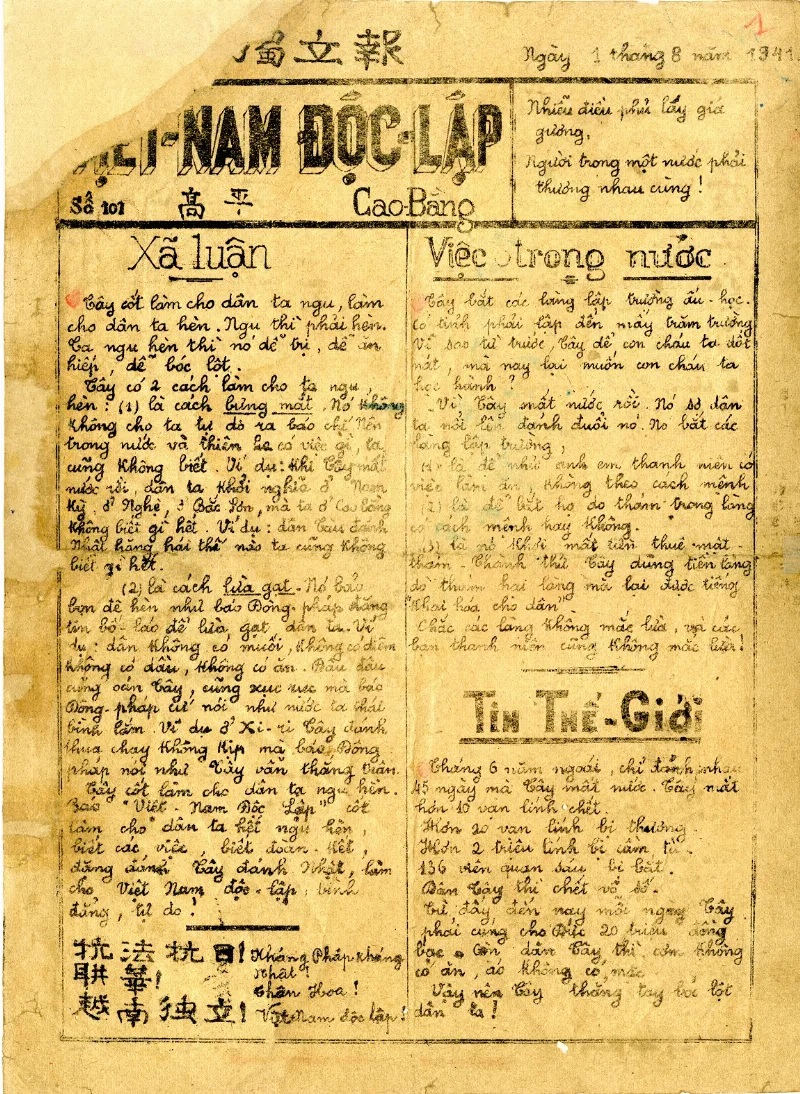 獨立報
Ngày 1 tháng 8 năm 1941.
VIỆT-NAM ĐỘC-LẬP
Số 101
高平
Cao-Bằng
Nhiễu điều phủ lấy giá
gương,
Người trong một nước phải
thương nhau cùng!
Xã luận
Tây cốt làm cho dân ta ngu, làm
cho dân ta hèn. Ngu thì phải hèn.
Ta ngu hèn thì nó dễ trị, dễ ăn
hiếp, dễ bóc lột.
Tây có 2 cách làm cho ta ngu,
hèn: (1) là cách bưng mắt. Nó không
không cho ta tự do ra báo chí. Nên
trong nước và thiên hạ có việc gì, ta
cũng không biết. Ví dụ: khi Tây mất
nước rồi, dân ta khởi nghĩa ở Nam
Kỳ, ở Nghệ, ở Bắc Sơn, mà ta ở Cao bằng
không biết gì hết. Ví dụ: dân Tàu đánh
Nhật hăng hái thế nào ta cũng không
biết gì hết.
(2) là cách lừa gạt. Nó bảo
bọn đê hèn như báo Đông-pháp đăng
tin bố-láo để lừa gạt dân ta. Ví
dụ: dân không có muối, không có diêm
không có dầu, không có ăn. Đâu đâu
cũng oán Tây, cũng xục xục mà báo
Đông-pháp cứ nói như nước ta thái
bình lắm. Ví dụ ở Xi-ri Tây đánh
thua chạy không kịp mà báo Đông
pháp nói như Tây vẫn thắng trận.
Tây cốt làm cho dân ta ngu hèn.
Báo "Việt-Nam Độc Lập" cốt
làm cho dân ta hết ngu hèn,
biết các việc, biết đoàn-kết,
đặng đánh Tây đánh Nhật, làm
cho Việt Nam độc-lập, bình
đẳng, tự do!
抗法抗日! Kháng Pháp kháng
Nhật!
聯華! Thân Hoa!
越南独立! Việt Nam độc lập!
Việc trong nước
Tây bắt các làng lập trường ấu-học.
Có tỉnh phải lập đến mấy trăm trường
Vì sao từ trước, Tây để con cháu ta dốt
nát, mà nay lại muốn con cháu ta
học hành?
Vì Tây mất nước rồi. Nó sợ dân
ta nổi lên đánh đuổi nó. Nó bắt các
làng lập trường,
(1) là để như anh em thanh niên có
việc làm ăn, không theo cách mệnh
(2) là để bắt họ do thám trong làng
có cách mệnh hay không.
(3) là nó khỏi mất tiền thuê mật-
thám. Thành thử Tây dùng tiền làng
do thám hại làng mà lại được tiếng
"Khai hóa cho dân"
Chắc các làng không mắc lừa, và các
bạn thanh niên cũng không mắc lừa!
TIN THẾ-GIỚI
Tháng 6 năm ngoái, chỉ đánh nhau
45 ngày mà Tây mất nước. Tây mất
hơn 10 vạn lính chết.
Hơn 20 vạn lính bị thương.
Hơn 2 triệu lính bị cầm tù.
136 viên quan sáu bị bắt.
Dân Tây thì chết vô số.
Từ đấy đến nay mỗi ngày Tây
phải cung cho Đức 20 triệu đồng
bạc. Còn dân Tây thì cơm không
có ăn, áo không có mặc.
Vậy nên Tây thẳng tay bóc lột
dân ta!
1